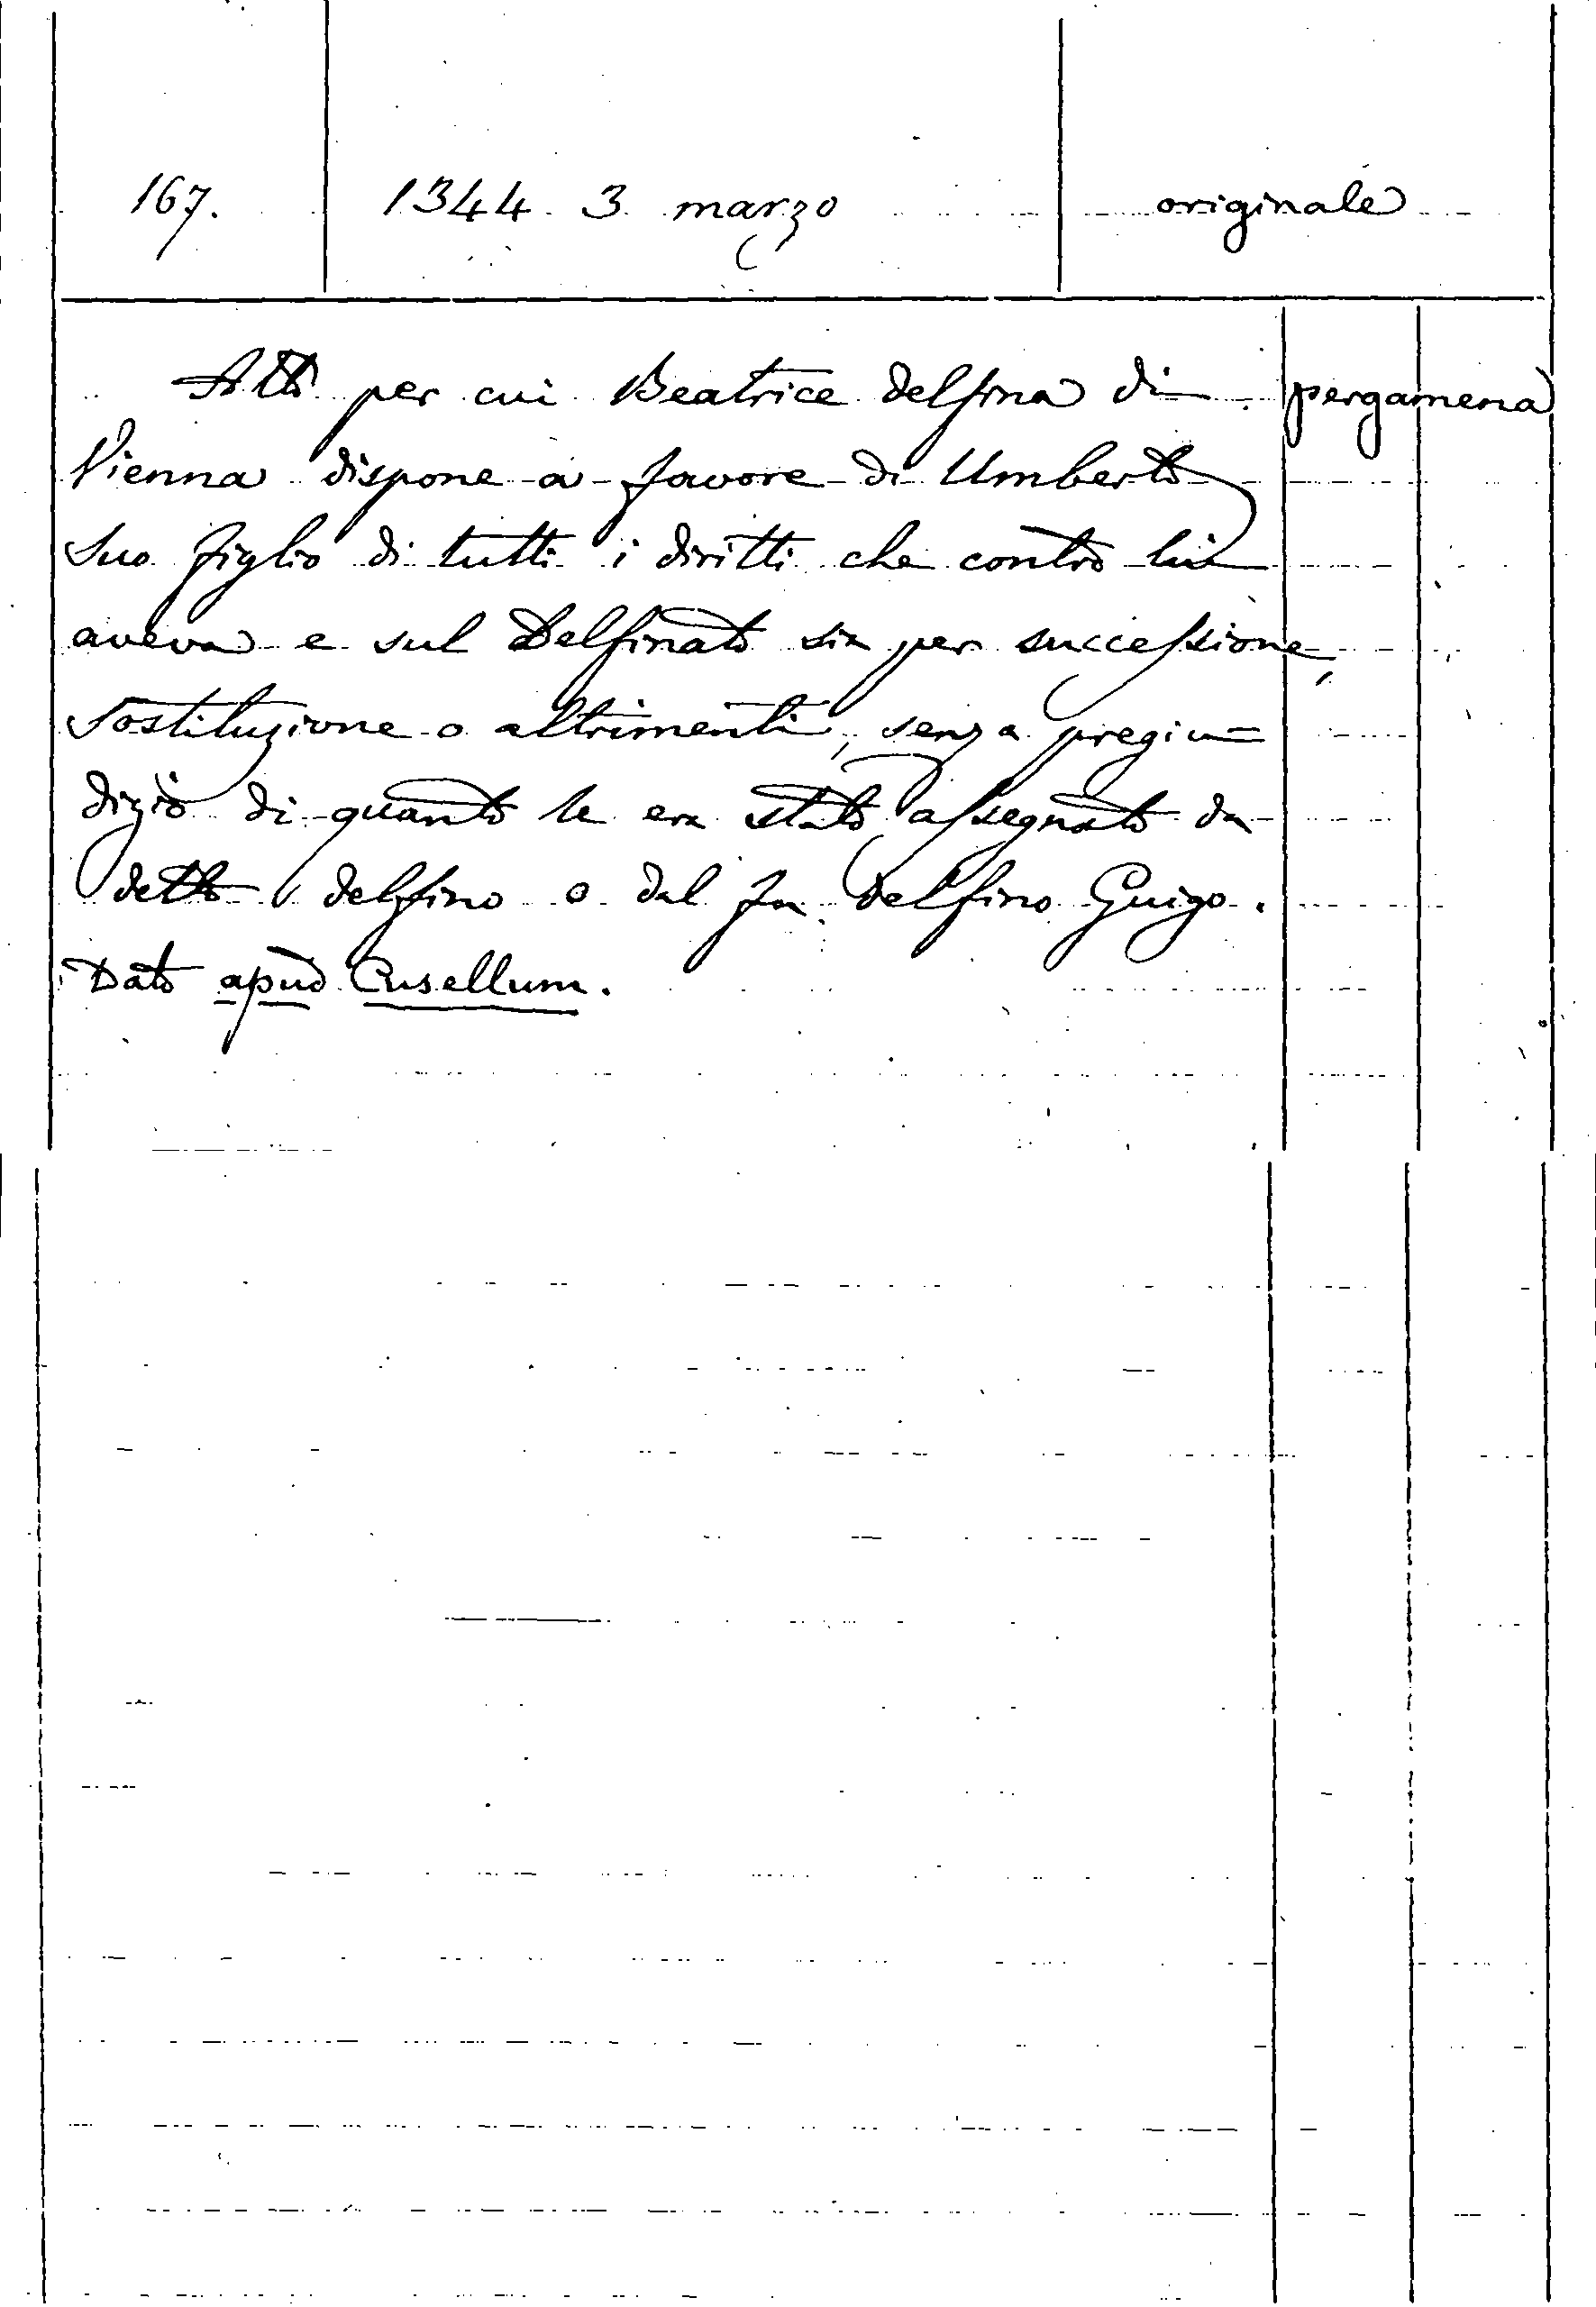 167. 1344 3 marzo originale
Atto per cui Beatrice delfina di pergamena
Vienna dispone a favore di Umberto
suo figlio di tutti i diritti che contro lui
aveva e sul Delfinato sia per successione,
sostituzione o altrimenti, senza pregiu=
dizio di quanto le era stato assegnato da
detto delfino o dal fu delfino Guigo.
Dato apud Cusellum.